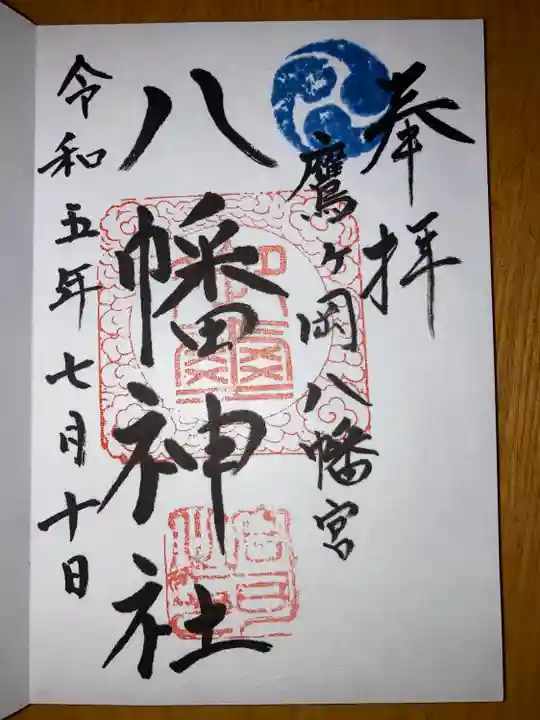 奉拝
鷹ヶ岡八幡宮
八幡神社
令和五年七月十日